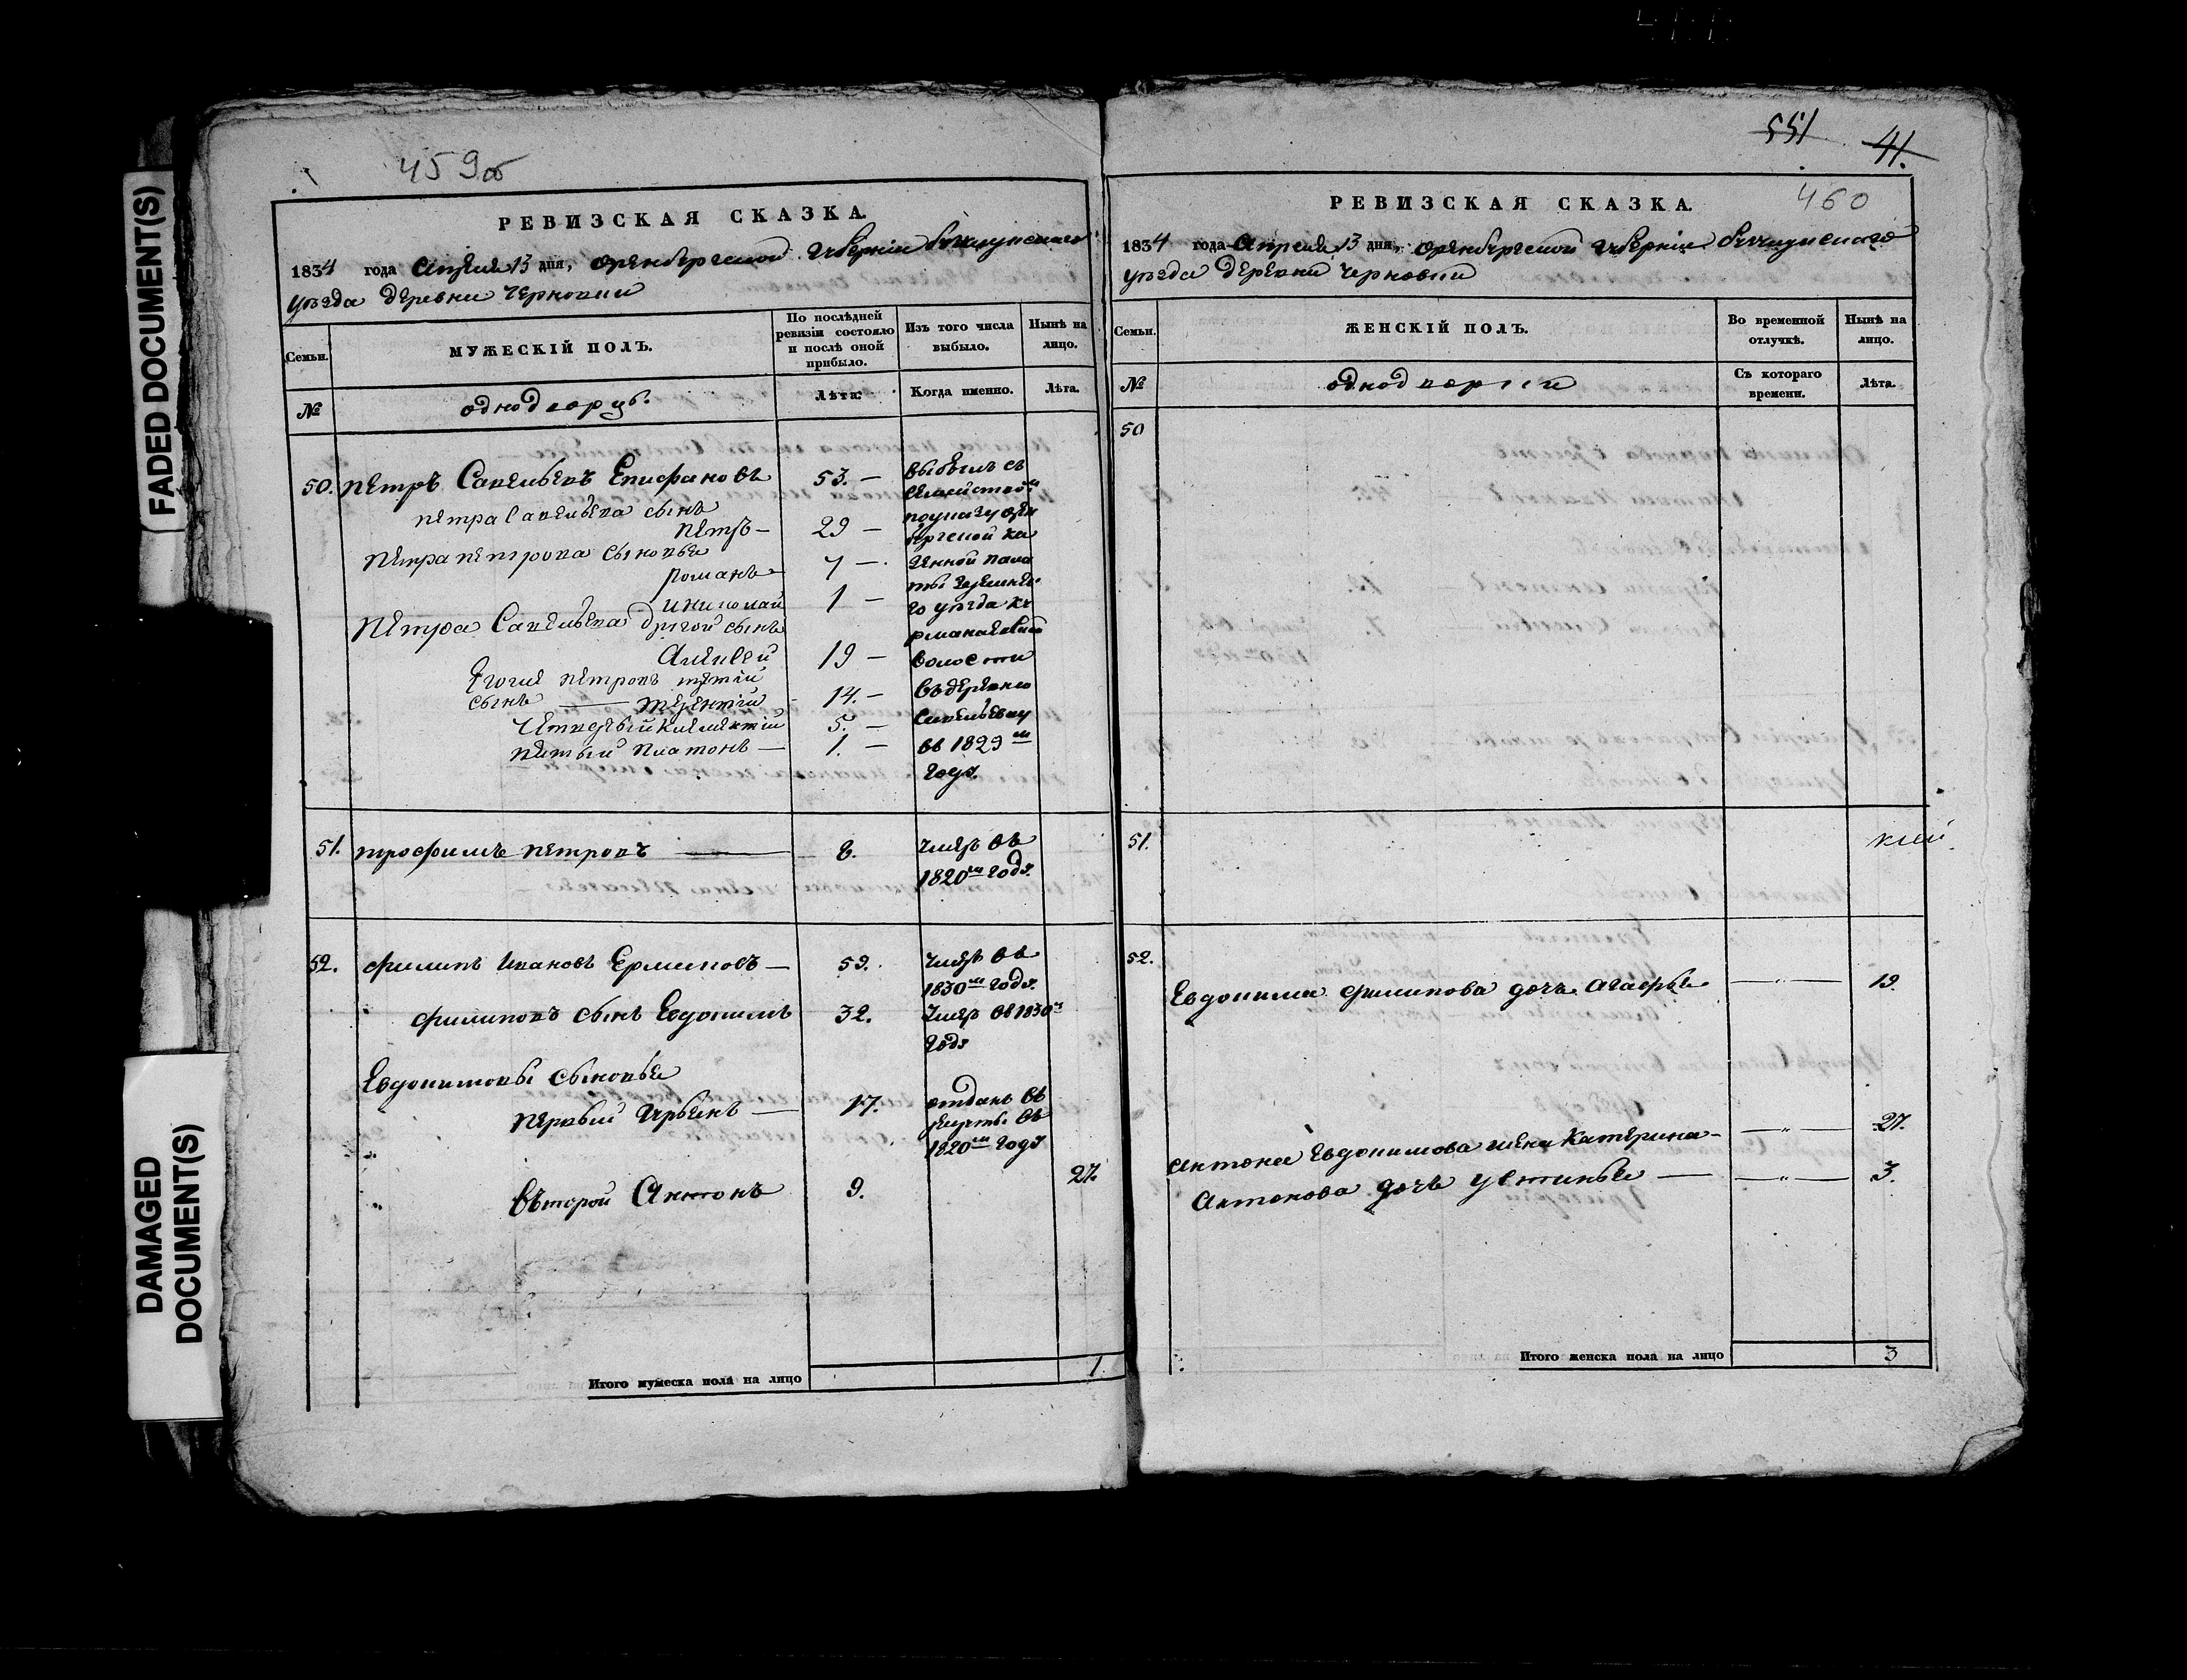 FADED DOCUMENT(S)
DAMAGED
DOCUMENT(S)
459об
РЕВИЗСКАЯ СКАЗКА.
1834 года Апреля 13 дня, оренбургской губерніи бузулукскаго
уѣзда деревни Черновки
Семьи.
МУЖЕСКІЙ ПОЛЪ.
По послѣдней
ревизіи состояло
и послѣ оной
прибыло.
Изъ того числа
выбыло.
Нынѣ на
лицо.
№
однодворцы.
Лѣта.
Когда именно.
Лѣта.
50. петръ Савельевъ Епифановъ 53. —
выбылъ съ
семействомъ
петра Савельева сынъ
петръ — 29 —
петра петрова сыновья
романъ 7 —
николай 1 —
Петра Савельева другой сынъ
Алексей 19 —
волости
Егоже петровъ третій
сынъ — терентій 14. —
въ деревню
четвертый Климентій 5. —
пятый платонъ — 1. —
въ 1829м
году.
51. трофимъ петровъ — 8.
умеръ въ
1820м году.
52. филипъ Ивановъ Ермиловъ — 59.
умеръ въ
1830м году.
филиповъ сынъ Евдокимъ 32.
умеръ въ 1830м
году
Евдокимовы сыновья
первый — 17.
отданъ въ
рекруты въ
1820м году
въторой Антонъ 9. 27.
Итого мужеска пола на лицо 1.
551 41.
460
РЕВИЗСКАЯ СКАЗКА.
1834 года Апреля 13 дня, оренбургской губерніи бузулукскаго
уѣзда деревни черновки
Семьи.
ЖЕНСКІЙ ПОЛЪ.
Во временной
отлучкѣ.
Нынѣ на
лицо.
№
Съ котораго
времени.
Лѣта.
50
51.
52.
Евдокима филипова дочь Агафья — " — 19.
Антона Евдокимова жена Катерина — " — 27.
Антонова дочь устинья — " — 3.
Итого женска пола на лицо 3